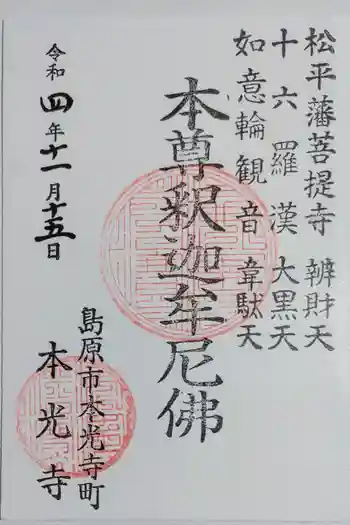 松平藩菩提寺 辨財天
十六羅漢 大黒天
如意輪観音 韋駄天
本尊釈迦牟尼佛
令和四年十一月十五日
島原市本光寺町
本光寺